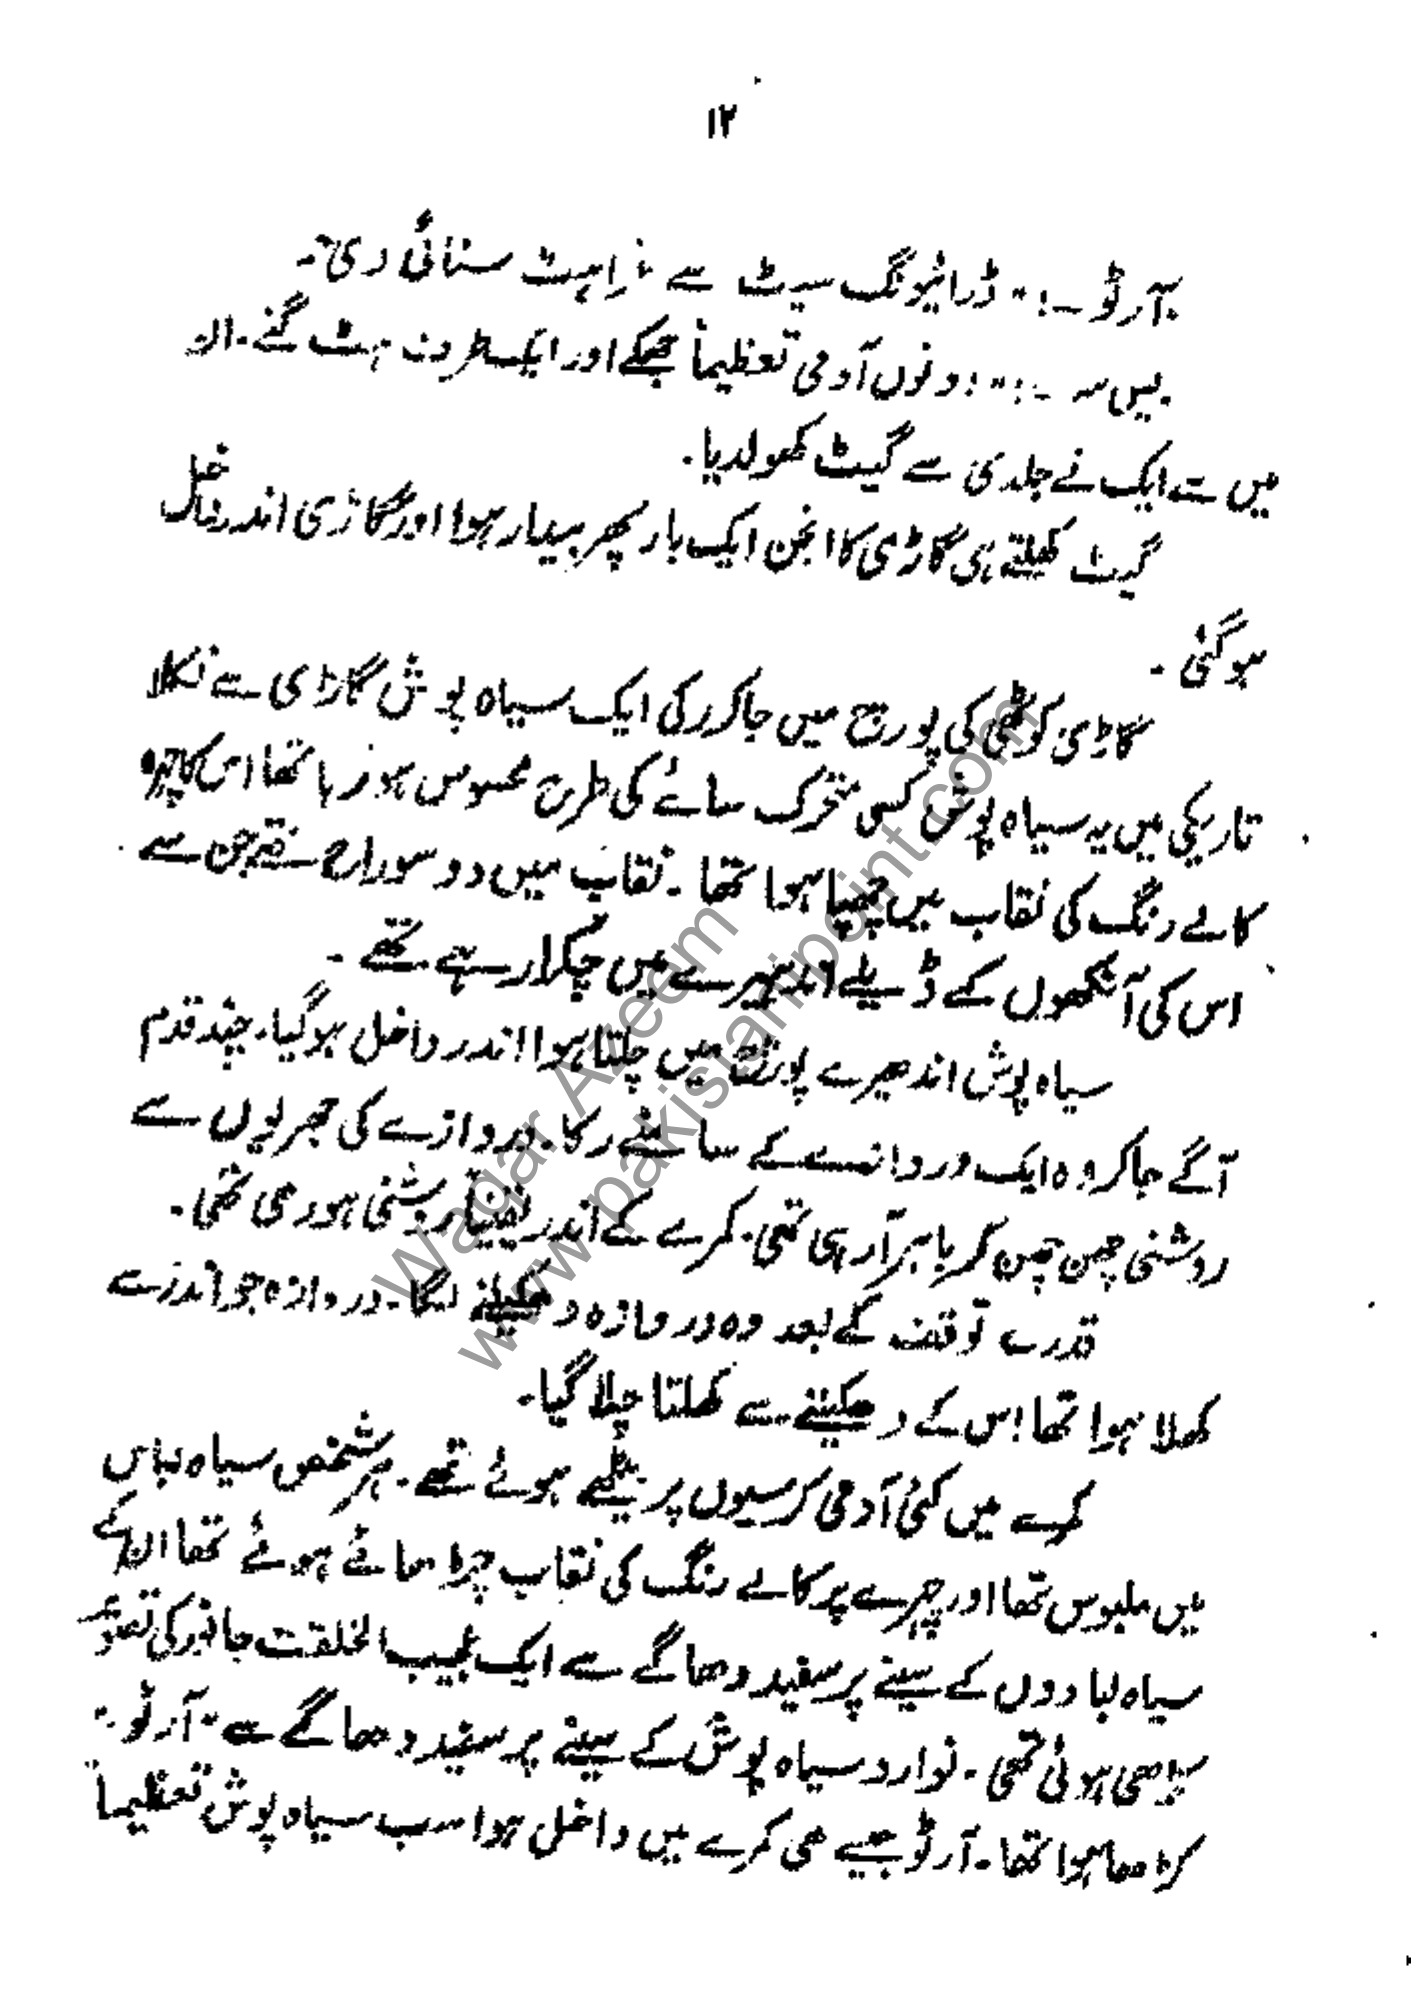 ۱۲
"آرڈ۔!" ڈرائیونگ سیٹ سے غراہٹ سنائی دی۔
"یس سر۔!" دونوں آدمی تعظیماً جھکے اور ایک طرف ہٹ گئے۔ ان
میں سے ایک نے جلدی سے گیٹ کھولدیا۔
گیٹ کھلتے ہی گاڑی کا انجن ایک بار پھر بیدار ہوا اور گاڑی اندر داخل
ہو گئی۔
گاڑی کوٹھی کی پورچ میں جا کر رکی ایک سیاہ پوش گاڑی سے نکلا
تاریکی میں یہ سیاہ پوش کسی متحرک سائے کی طرح محسوس ہو رہا تھا اس کا چہرہ
کالے رنگ کی نقاب میں چھپا ہوا تھا۔ نقاب میں دو سوراخ تھے جن سے
اس کی آنکھوں کے ڈیلے اندھیرے میں چکرا رہے تھے۔
سیاہ پوش اندھیرے پورچ میں چلتا ہوا اندر داخل ہو گیا۔ چند قدم
آگے جا کر وہ ایک دروازے کے سامنے رکا۔ دروازے کی جھریوں سے
روشنی چھن چھن کر باہر آ رہی تھی۔ کمرے کے اندر یقیناً روشنی ہو رہی تھی۔
قدرے توقف کے بعد وہ دروازہ دھکیلنے لگا۔ دروازہ جو اندر سے
کھلا ہوا تھا اس کے دھکیلنے سے کھلتا چلا گیا۔
کمرے میں کئی آدمی کرسیوں پر بیٹھے ہوئے تھے۔ ہر شخص سیاہ لباس
میں ملبوس تھا اور چہرے پر کالے رنگ کی نقاب چڑھائے ہوئے تھا ان کے
سیاہ لبادوں کے سینے پر سفید دھاگے سے ایک عجیب الخلقت جانور کی تصویر
کڑھی ہوئی تھی۔ نووارد سیاہ پوش کے سینے پر سفید دھاگے سے "آرڈ۔"
کڑھا ہوا تھا۔ آرڈ جیسے ہی کمرے میں داخل ہوا سب سیاہ پوش تعظیماً
Waqar Azeem
www.pakistanipoint.com